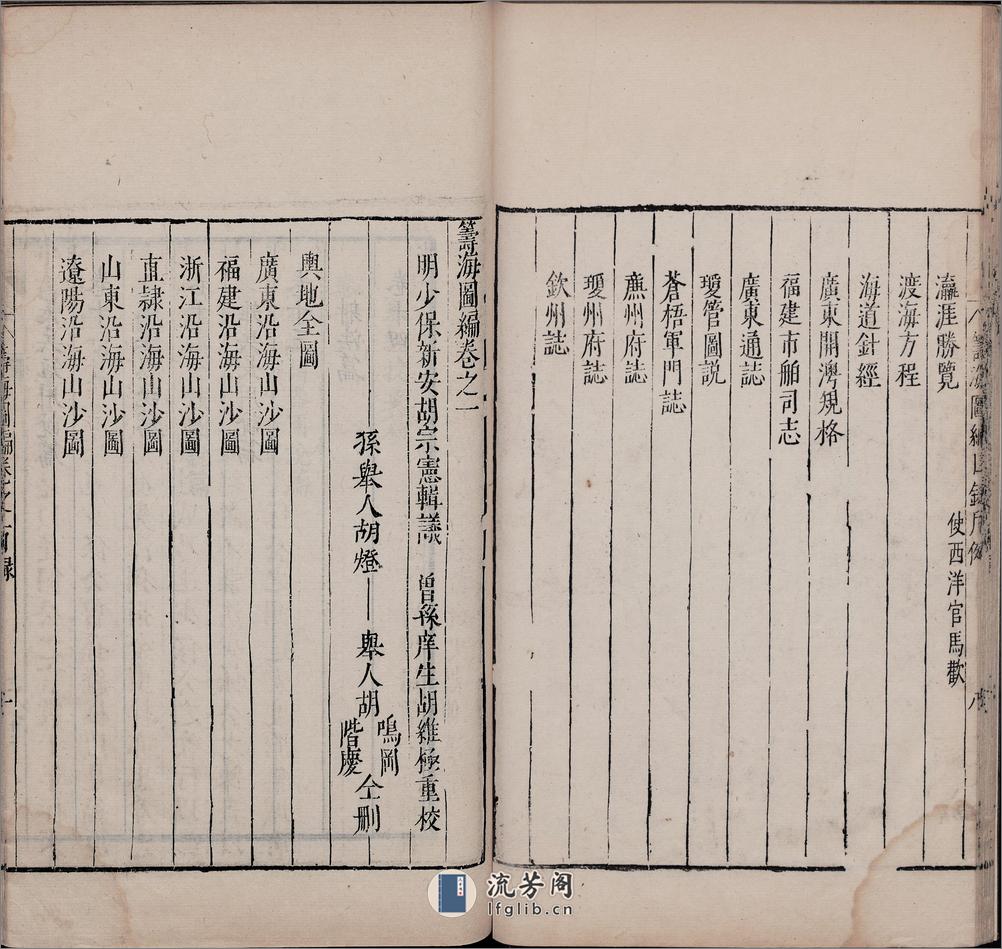 瀛涯勝覽 使西洋官馬歡
渡海方程
海道針經
廣東開澳規格
福建市舶司志
廣東通誌
瓊管圖説
蒼梧軍門誌
亷州府誌
瓊州府誌
欽州誌
籌海圖編卷之一
明少保新安胡宗憲輯議 曾孫庠生胡維極重校
孫舉人胡燈
舉人胡
鳴岡
階慶
仝删
輿地全圖
廣東沿海山沙圖
福建沿海山沙圖
浙江沿海山沙圖
直隸沿海山沙圖
山東沿海山沙圖
遼陽沿海山沙圖
流芳阁
lfglib.cn